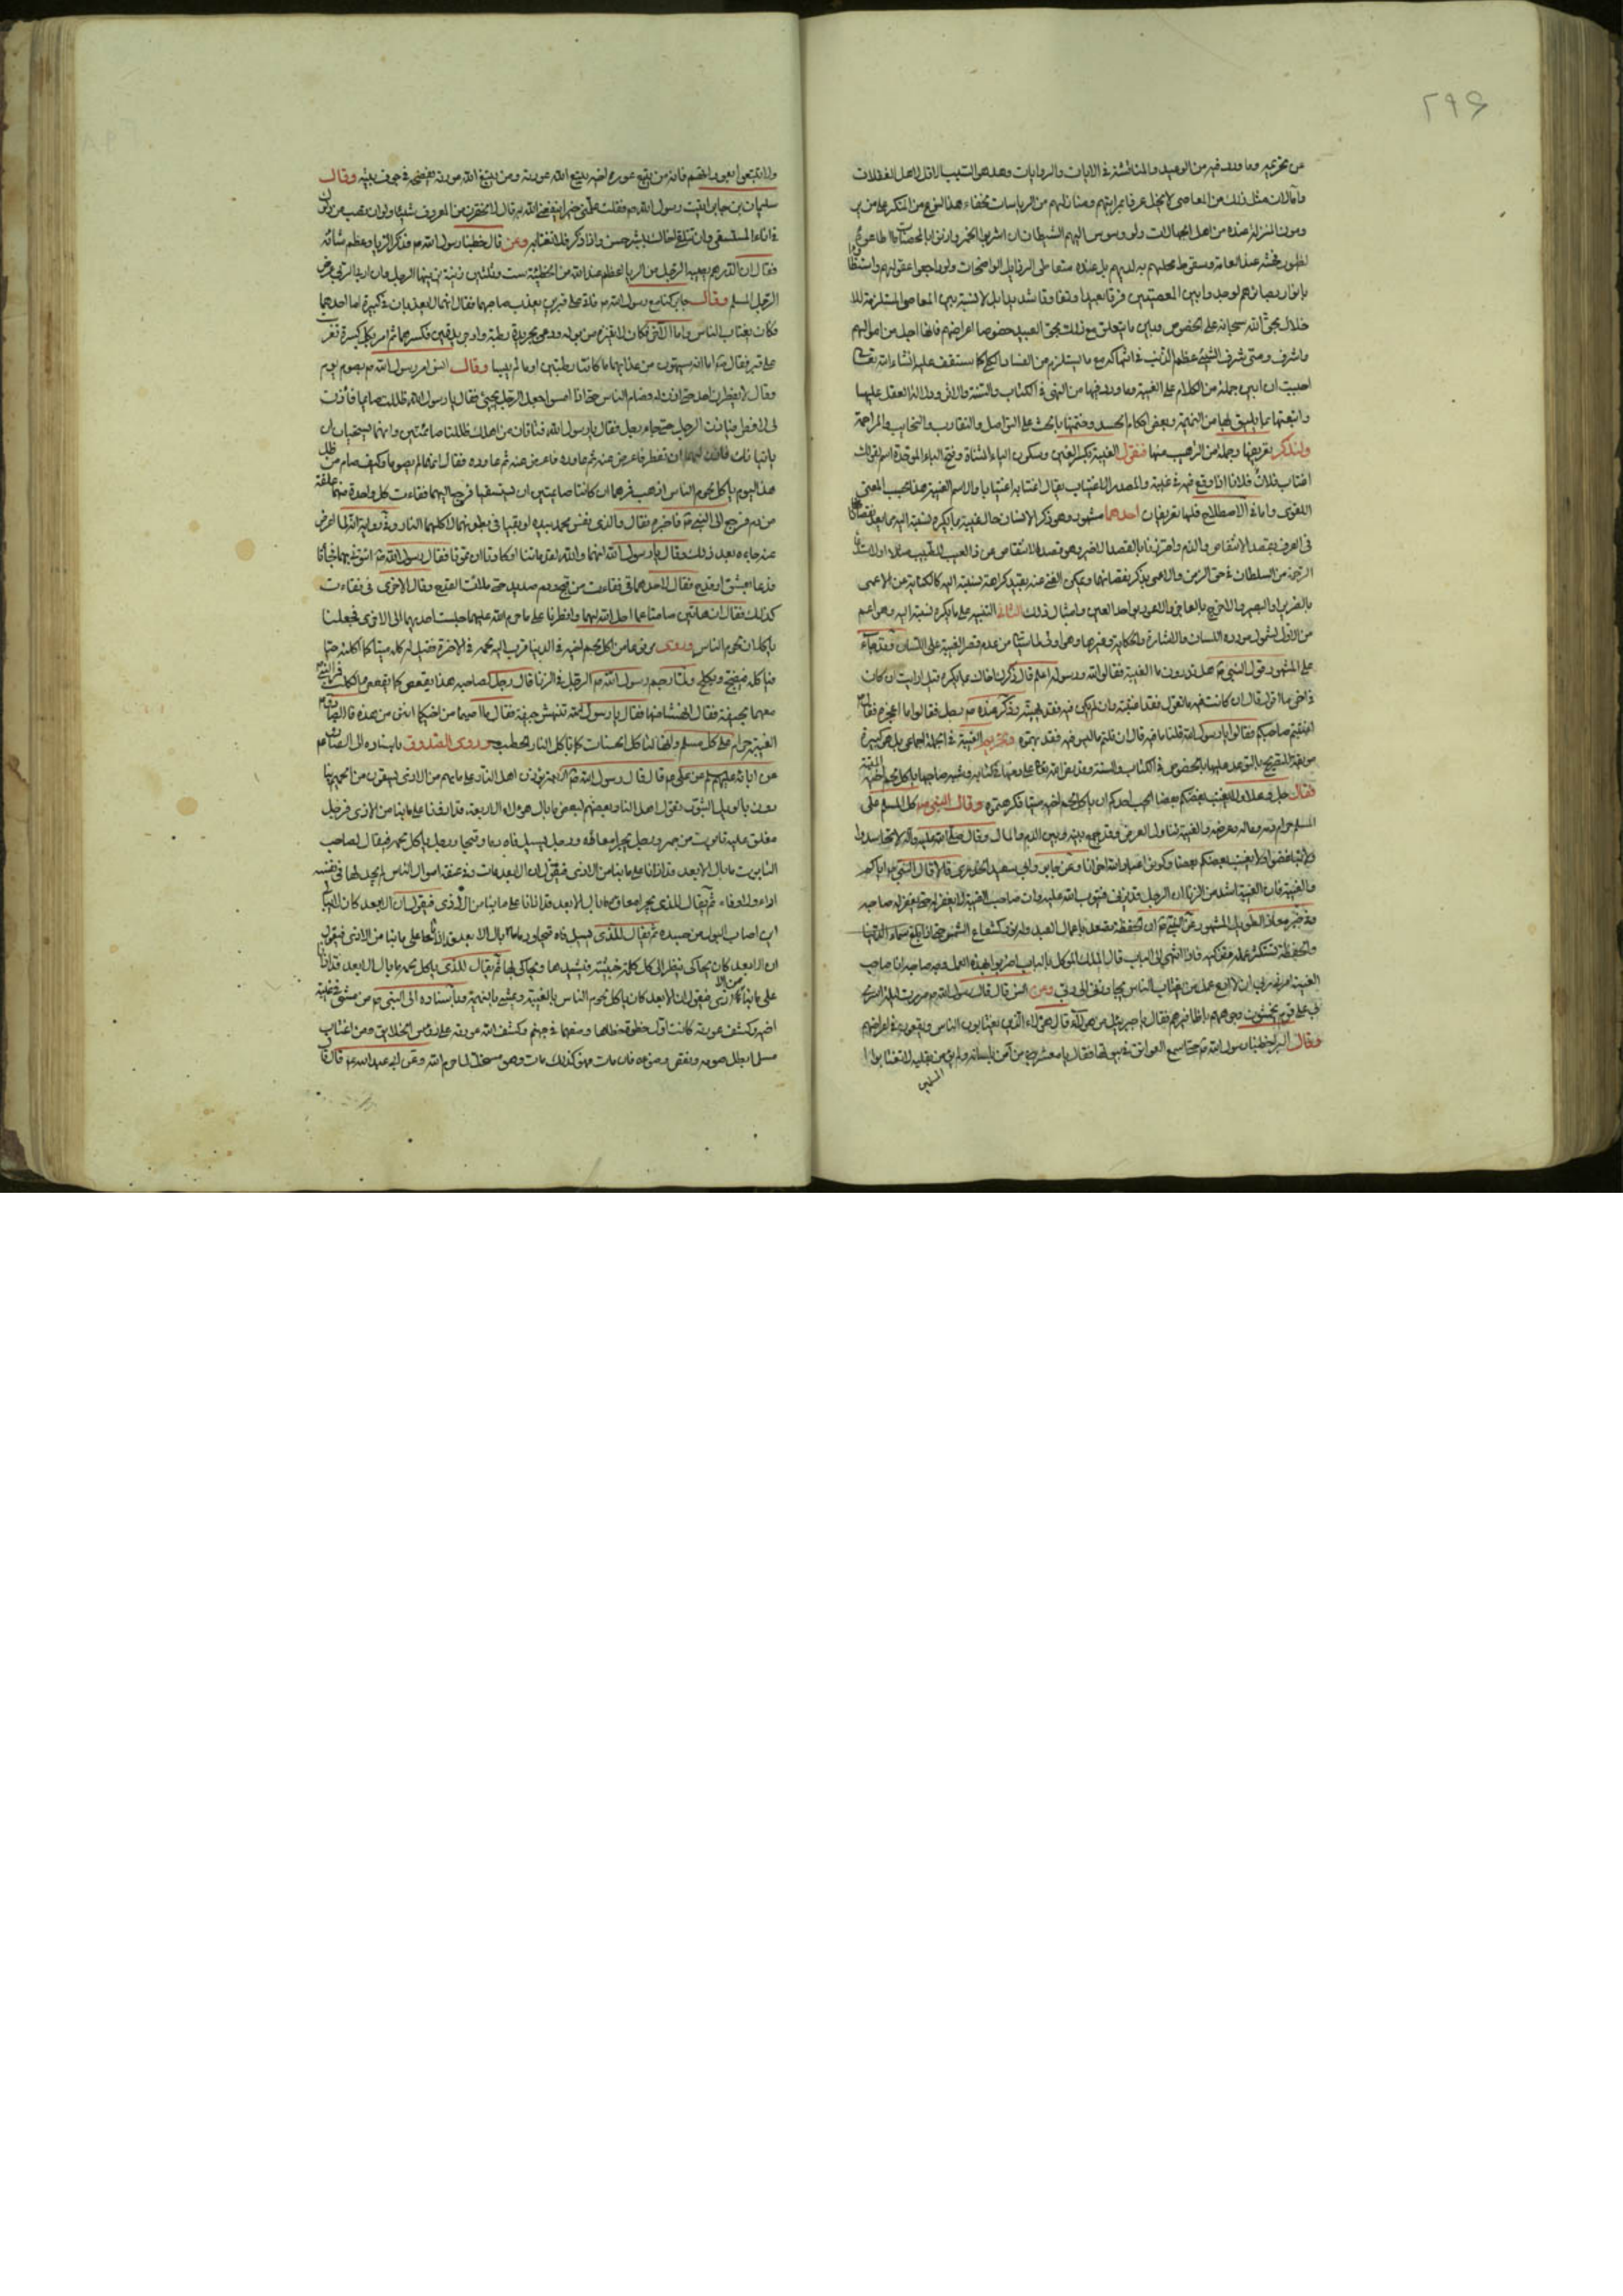 ٢٩۶
من تحريمه وما ورد فيه من الوعيد والمناقشة في الآيات والروايات وهذا هو السبب الاقل لاهل الغفلات
وأما لان مثل ذلك من المعاصي لا يخل عرفا بمراتبهم ومنازلهم من الرياسات لخفاء هذا النوع من المنكر على من
يرومون المنزلة عنده من اهل الجهالات ولو وسوس اليهم الشيطان ان اشربوا الخمر وازنوا بالمحصنات ما اطاعوه
لظهور فحشه عند العامة وسقوط محلهم به لديهم بل عند متعاطي الرذايل الواضحات ولو راجعوا عقولهم واستضاؤا
بانوار بصائرهم لوجدوا بين المعصيتين فرقا بعيدا وتفاوتا شديدا بل لا نسبة بين المعاصي المستلزمة للا
خلال بحق الله سبحانه على الخصوص وبين ما يتعلق مع ذلك بحق العبيد خصوصا اعراضهم فانها اجل من اموالهم
واشرف ومتى شرف الشيء عظم الذنب في انتهاكه مع ما يستلزم من الفساد الكلي كما ستقف عليه انشاء الله تعالى
احببت ان ابين جملة من الكلام على الغيبة وما ورد فيها من النهي في الكتاب والسنة والاثر ودلالة العقل عليها
واتبعتها بما يليق بها من النميمة وبعض احكام الحسد وختمتها بالحث على التواصل والتقارب والتحابب والمراحمة
ولنذكر تعريفها وجملا من الترهيب منها فنقول الغيبة بكسر الغين وسكون الياء المثناة وفتح الباء الموحدة اسم لقولك
اغتاب فلان فلانا اذا وقع فيه في غيبته والمصدر الاغتياب يقال اغتابه اغتيابا والاسم الغيبة هذا بحسب المعنى
اللغوي واما في الاصطلاح فلها تعريفان احدهما مشهور وهو ذكر الانسان حال غيبته بما يكره نسبته اليه مما يعد نقصانا
في العرف بقصد الانتقاص والذم واحترز بالقصد الاخير وهو قصد الانتقاص عن ذكر العيب للطبيب مثلا او لاستدعاء
الرحمة من السلطان في حق الزمن والاعمى بذكر نقصانهما ويمكن الغنى عنه بقيد كراهة نسبته اليه كالكناية عن الاعمى
بالضرير او البصير والاعرج بالعارج والاعور بواحد العين وامثال ذلك الثاني التنبيه على ما يكره نسبته اليه وهو اعم
من الاول لشمول مورده اللسان والاشارة والحكاية وغيرها وهو اولى لما سيأتي من عدم قصر الغيبة على اللسان وقد جاء
على المشهور قول النبي ص هل تدرون ما الغيبة فقالوا الله ورسوله اعلم قال ذكرك اخاك بما يكره قيل ارايت ان كان
في اخي ما اقول قال ان كان فيه ما تقول فقد اغتبته وان لم يكن فيه فقد بهته وذكر عنده ص رجل فقالوا ما اعجزه فقال ص
اغتبتم صاحبكم فقالوا يا رسول الله قلنا ما فيه قال ان قلتم ما ليس فيه فقد بهتموه وتحريم الغيبة في الجملة اجماعي بل هو كبيرة
موبقة للتصريح بالتوعد عليها بالخصوص في الكتاب والسنة وقد نص الله تعالى على ذمها في كتابه وشبه صاحبها باكل لحم اخيه الميتة
فقال جل وعلا ولا يغتب بعضكم بعضا ايحب احدكم ان ياكل لحم اخيه ميتا فكرهتموه وقال النبي ص كل المسلم على
المسلم حرام دمه وماله وعرضه والغيبة تناول العرض وقد جمع بينه وبين الدم والمال وقال صلى الله عليه وآله لا تحاسدوا
ولا تباغضوا ولا يغتب بعضكم بعضا وكونوا عباد الله اخوانا وعن جابر وابي سعيد الخدري قالا قال النبي ص اياكم
والغيبة فان الغيبة اشد من الزنا ان الرجل قد يزني فيتوب فيتوب الله عليه وان صاحب الغيبة لا يغفر له حتى يغفر له صاحبه
وفي خبر معاذ الطويل المشهور عن النبي ص ان الحفظة تصعد باعمال العبد وله نور كشعاع الشمس حتى اذا بلغ سماء الدنيا
والحفظة تستكثر عمله وتزكيه فاذا انتهى الى الباب قال الملك الموكل بالباب اضربوا بهذا العمل وجه صاحبه انا صاحب
الغيبة امرني ربي ان لا ادع عمل من يغتاب الناس يتجاوزني الى ربي وعن انس قال قال رسول الله ص مررت ليلة اسري
بي على قوم يخمشون وجوههم باظافيرهم فقال يا جبرئيل من هؤلاء قال هؤلاء الذين يغتابون الناس ويقعون في اعراضهم
وقال البراء خطبنا رسول الله ص حتى اسمع العواتق في بيوتها فقال يا معشر من آمن بلسانه ولم يؤمن بقلبه لا تغتابوا
المسلمين
ولا تتبعوا عوراتهم فانه من تتبع عورة اخيه يتتبع الله عورته ومن يتتبع الله عورته يفضحه في جوف بيته وقال
سليمان بن جابر اتيت رسول الله ص فقلت علمني خيرا ينفعني الله به قال لا تحقرن من المعروف شيئا ولو ان تصب من دلوك
في اناء المستسقي وان تلقى اخاك ببشر حسن واذا ادبر فلا تغتابه وعن قال خطبنا رسول الله ص فذكر الربا وعظم شانه
فقال ان الدرهم يصيبه الرجل من الربا اعظم عند الله من الخطيئة ست وثلثين زنية يزنيها الرجل وان اربا الربا عرض
الرجل المسلم وقال جابر كنا مع رسول الله ص فاتى على قبرين يعذب صاحبهما فقال انهما لا يعذبان في كبيرة اما احدهما
فكان يغتاب الناس واما الآخر فكان لا يتنزه من بوله ودعى بجريدة رطبة او جريدتين فكسرهما ثم امر بكل كسرة فغرست
على قبر فقال ص اما انه سيهون من عذابهما ما كانتا رطبتين او ما لم ييبسا وقال انس امر رسول الله ص بصوم يوم
وقال لا يفطرن احد حتى آذن له فصام الناس حتى اذا امسوا جعل الرجل يجيئ فيقول يا رسول الله ظللت صائما فأذن
لي لافطر فيأذن له حتى جاء رجل فقال يا رسول الله فتاتان من اهلك ظلتا صائمتين وانهما تستحيان ان
ياتيانك فأذن لهما ان تفطرا فاعرض عنه ثم عاوده فاعرض عنه ثم عاوده فقال انهما لم يصوما وكيف صام من ظل
هذا اليوم ياكل لحوم الناس اذهب فمرهما ان كانتا صائمتين ان تستقيئا فرجع اليهما فقاءت كل واحدة منهما علقة
من دم فرجع الى النبي ص فاخبره فقال والذي نفس محمد بيده لو بقيتا في بطونهما لاكلتهما النار وفي رواية انه لما اعرض
عنه جاءه بعد ذلك وقال يا رسول الله انهما والله لقد ماتتا او كادتا ان تموتا فقال رسول الله ص ائتوني بهما فجاءتا
ودعا بعس او قدح فقال لاحدهما قيئي فقاءت من قيح ودم صديد حتى ملأت القدح وقال للاخرى قيئي فقاءت
كذلك فقال ان هاتين صامتا عما احل الله لهما وافطرتا على ما حرم الله عليهما جلست احديهما الى الاخرى فجعلتا
ياكلان لحوم الناس وروى مرفوعا من اكل لحم اخيه في الدنيا قرب اليه لحمه في الآخرة فقيل له كله ميتا كما اكلته حيا
فياكله فيضج ويكلح ولما رجم رسول الله ص الرجل في الزنا قال رجل لصاحبه هذا يقعص كما يقعص الكلب فمر النبي ص
معهما بجيفة فقال انهشا منها فقالا يا رسول الله ننهش جيفة فقال ما اصبتما من اخيكما انتن من هذه قال الصادق ع
الغيبة حرام على كل مسلم وانها لتاكل الحسنات كما تاكل النار الحطب وروى الصدوق باسناده الى الصادق ع
عن ابائه عليهم السلم عن علي ع قال قال رسول الله ص اربعة يؤذون اهل النار على ما بهم من الاذى يسقون من الحميم
ينادون بالويل والثبور يقول اهل النار بعضهم لبعض ما بال هؤلاء الاربعة قد آذونا على ما بنا من الاذى فرجل
معلق عليه تابوت من جمر ورجل يجر امعاؤه ورجل يسيل فاه دما وقيحا ورجل ياكل لحمه فيقال لصاحب
التابوت ما بال الابعد قد آذانا على ما بنا من الاذى فيقول ان الابعد مات وفي عنقه اموال الناس لم يجد لها في نفسه
اداء ولا وفاء ثم يقال للذي يجر امعاءه ما بال الابعد قد آذانا على ما بنا من الاذى فيقول ان الابعد كان لا يبالي
اين اصاب البول من جسده ثم يقال للذي يسيل فاه قيحا ودما ما بال الابعد قد آذانا على ما بنا من الاذى فيقول
ان الابعد كان يحاكي ينظر الى كل كلمة خبيثة فيسندها ويحاكي بها ثم يقال للذي ياكل لحمه ما بال الابعد قد آذانا
على ما بنا من الاذى فيقول ان الابعد كان ياكل لحوم الناس بالغيبة ويمشي بالنميمة وباسناده الى النبي ص من مشى في غيبة
اخيه وكشف عورته كانت اول خطوة خطاها وضعها في جهنم وكشف الله عورته على رؤس الخلايق ومن اغتاب
مسلما بطل صومه ونقض وضوءه فان مات وهو كذلك مات وهو مستحل لما حرم الله وعن ابي عبد الله ع قال قال